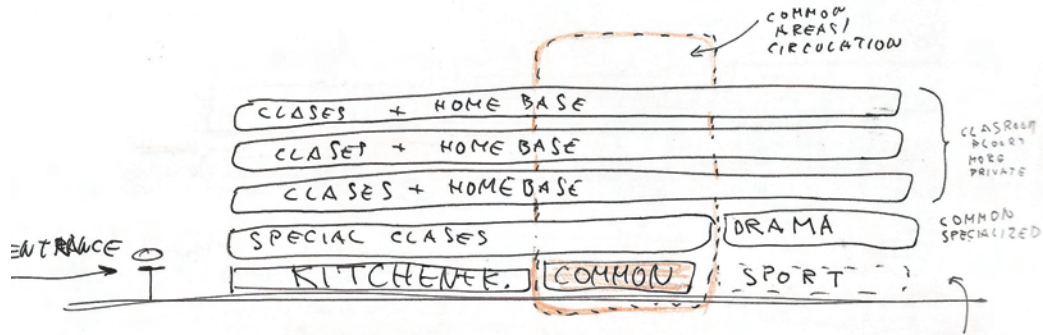 COMMON
AREAS/
CIRCULATION
CLASES + HOME BASE
CLASES + HOME BASE
CLASES + HOMEBASE
CLASROOM
FLOORS
MORE
PRIVATE
SPECIAL CLASES
DRAMA
COMMON
SPECIALIZED
ENTRANCE
COMMON
SPORT